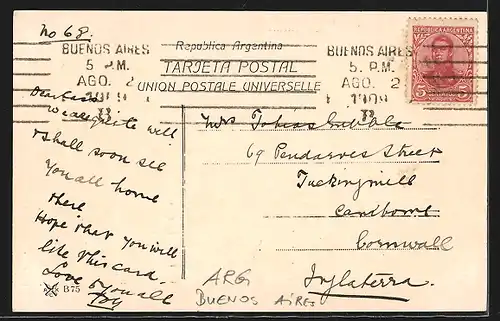 No 68.
BUENOS AIRES
5 P.M.
AGO. 2
1909
Republica Argentina
TARJETA POSTAL
UNION POSTALE UNIVERSELLE
BUENOS AIRES
5. P.M.
AGO. 2
1909
REPUBLICA ARGENTINA
5 5
Dear
We are quite well
I shall soon see
you all home
there
Hope that you will
like this card.
Love to you all
Mrs Tobias
69 Pendarves Street
Tuckingmill
Camborne
Cornwall
Inglaterra.
B 75
ARG
BUENOS AIRES